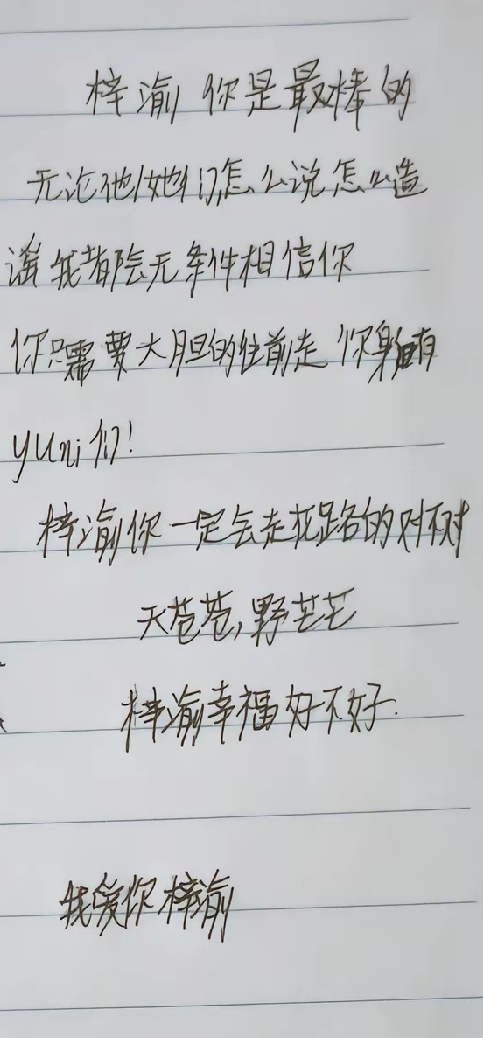 梓渝你是最棒的
无论他/她们怎么说怎么造
谣我都会无条件相信你
你只需要大胆的往前走 你身后有
yuni们!
梓渝你一定会走花路的对不对
天苍苍,野芒芒
梓渝幸福好不好.
我爱你梓渝